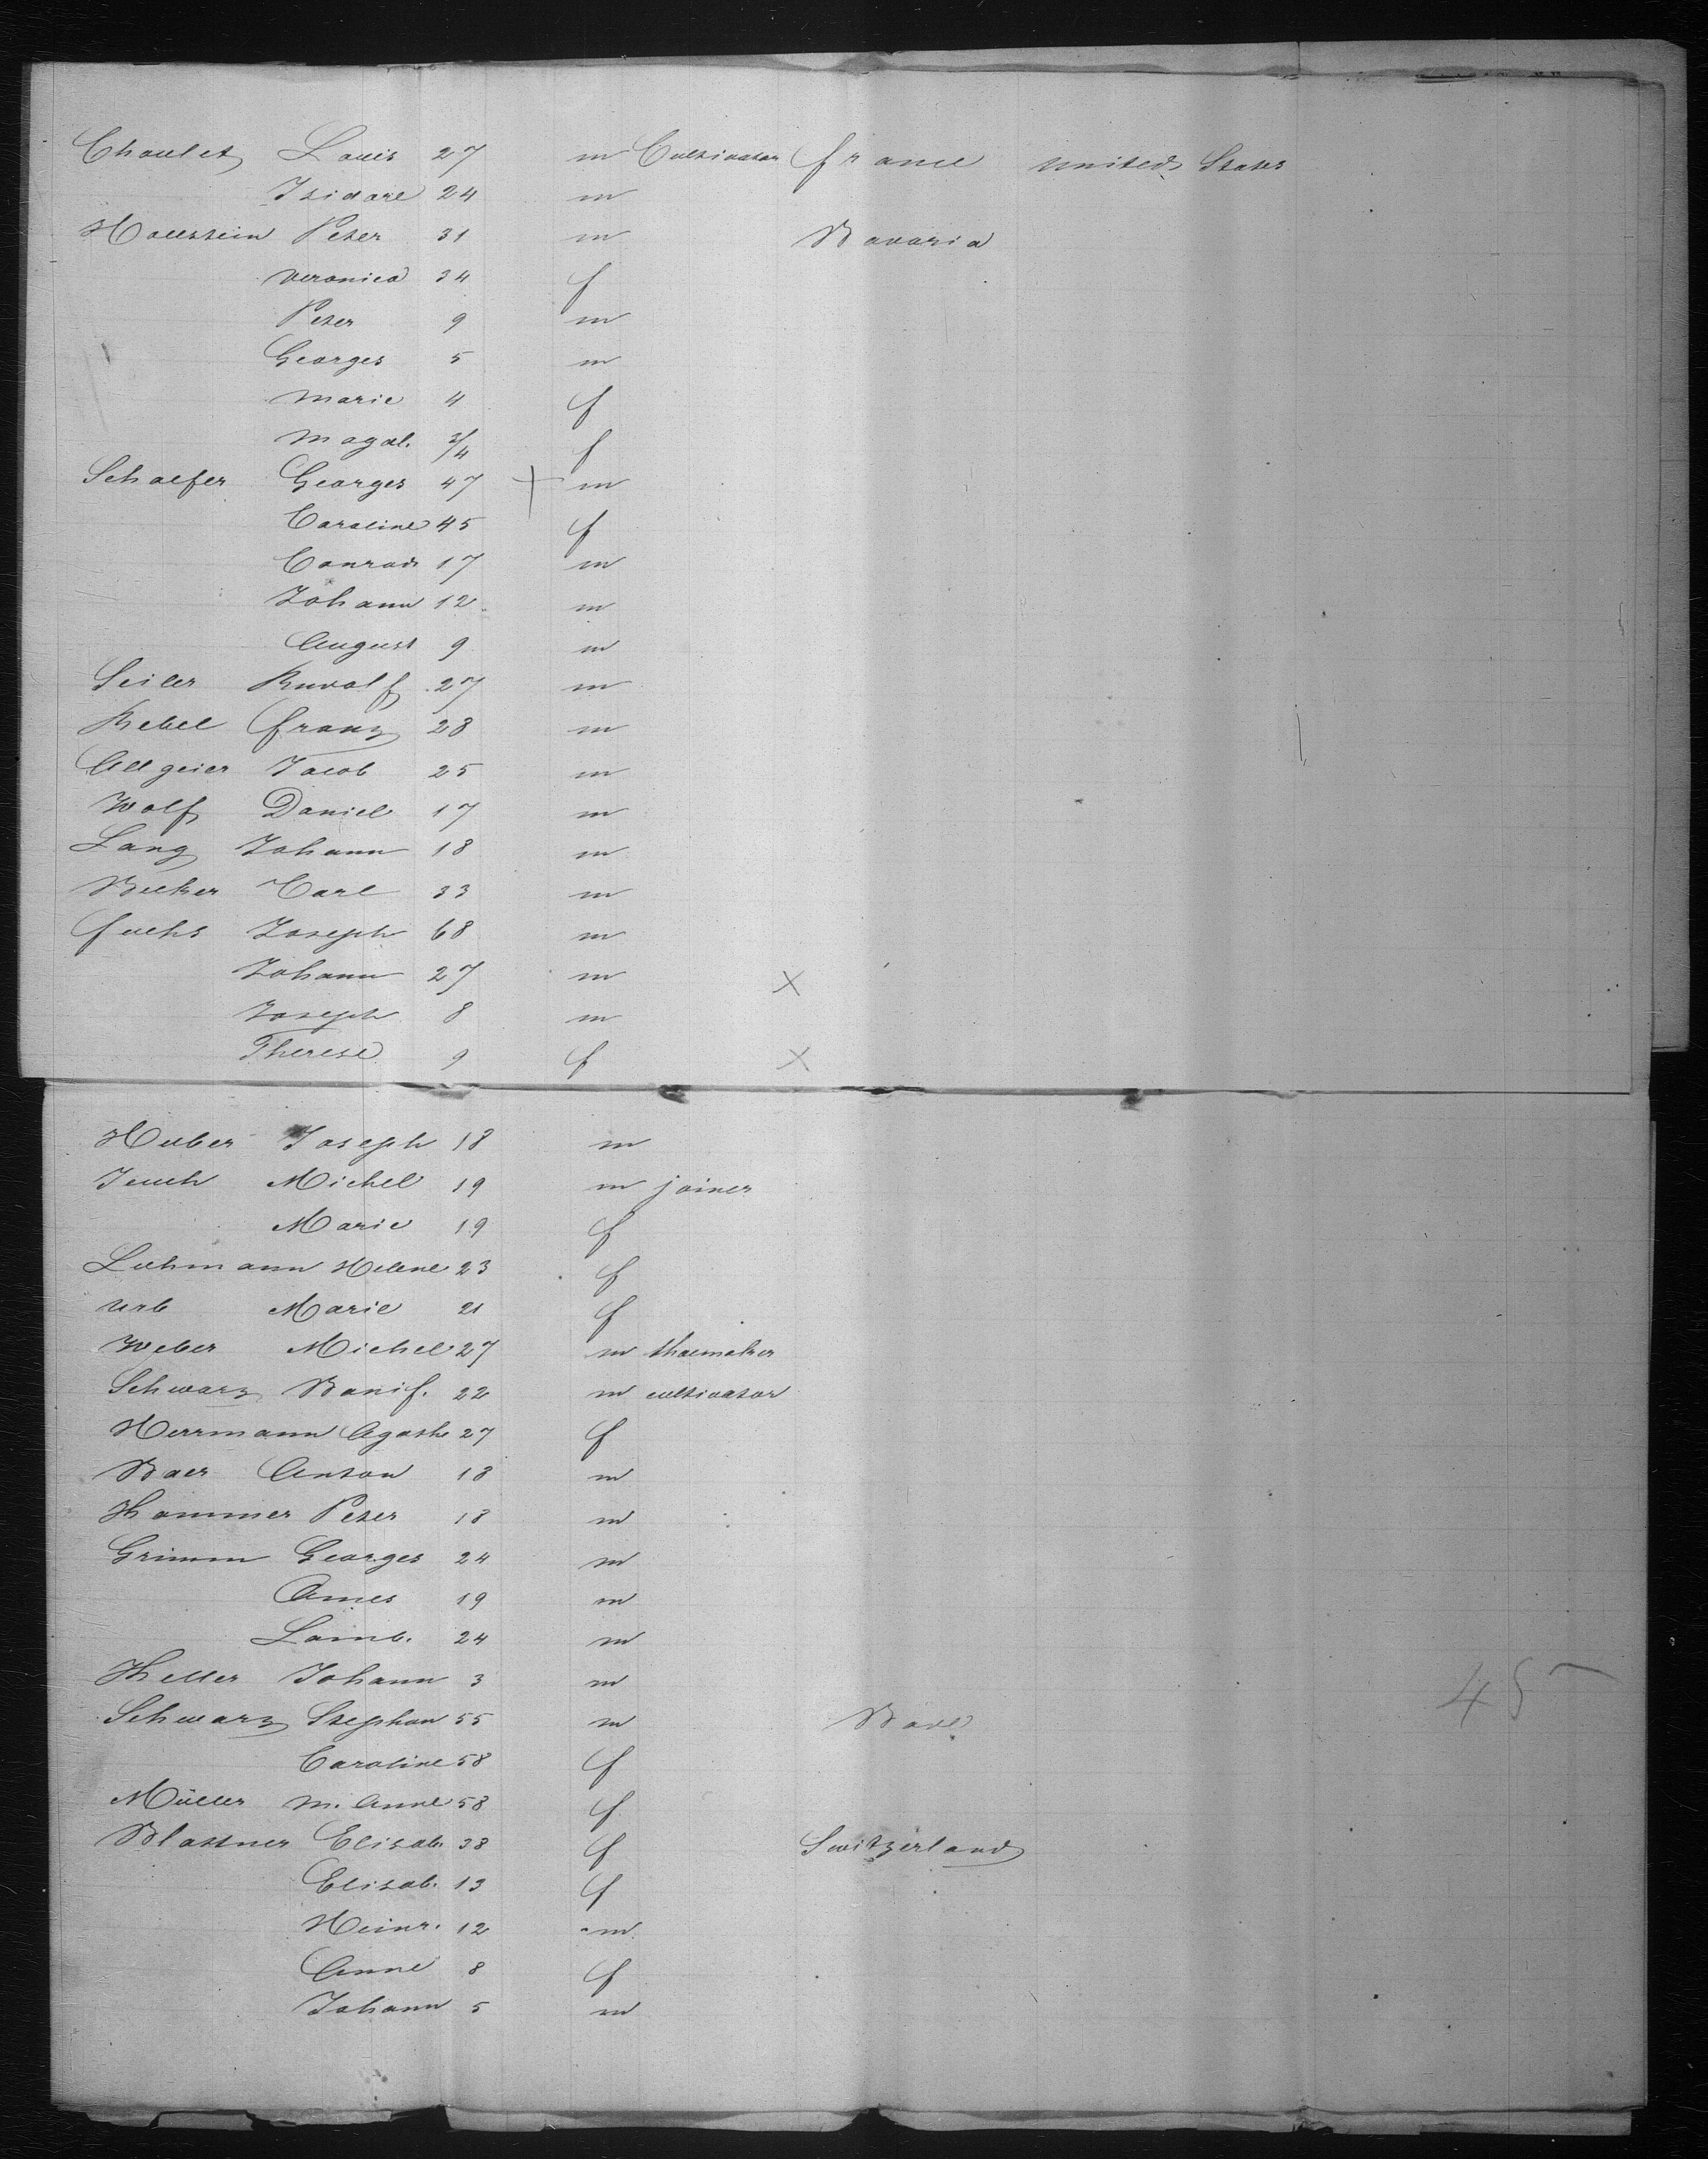 Choulet Louis 27 m Cultivator france united States
Isidore 24 m
Hollstein Peter 31 m Bavaria
Veronica 34 f
Peter 9 m
Georges 5 m
Marie 4 f
Magdl. 3/4 f
Schaefer Georges 47 + m
Caroline 45 f
Conrad 17 m
Johann 12 m
August 9 m
Seiler Rudolf 27 m
Rebel franz 28 m
Allgeier Jacob 25 m
Wolf Daniel 17 m
Lang Johann 18 m
Becker Carl 33 m
fuchs Joseph 68 m
Johann 27 m x
Joseph 8 m
Therese 9 f x
Huber Joseph 18 m
Jeuch Michel 19 m joiner
Marie 19 f
Lehmann Helene 23 f
Urb Marie 21 f
Weber Michel 27 m shoemaker
Schwarz Bonif. 22 m cultivator
Herrmann Agathe 27 f
Baer Anton 18 m
Hammer Peter 18 m
Grimm Georges 24 m
19 m
Lamb. 24 m
Heller Johann 3 m
Schwarz Stephan 55 m Bade 45
Caroline 58 f
Müller M. Anne 58 f
Blattner Elisab. 38 f Switzerland
Elisab. 13 f
Heinr. 12 m
Anne 8 f
Johann 5 m